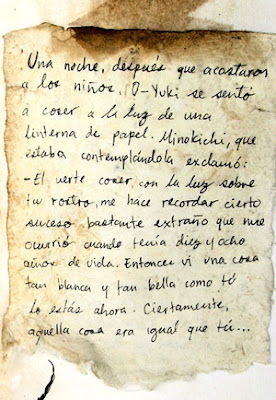 Una noche, después que acostaron
a los niños, O-Yuki se sentó
a coser a la luz de una
linterna de papel. Minokichi, que
estaba contemplándola exclamó:
-El verte coser, con la luz sobre
tu rostro, me hace recordar cierto
suceso bastante extraño que me
ocurrió cuando tenía diez y ocho
años de vida. Entonces vi una cosa
tan blanca y tan bella como tú
lo estás ahora. Ciertamente,
aquella cosa era igual que tú...